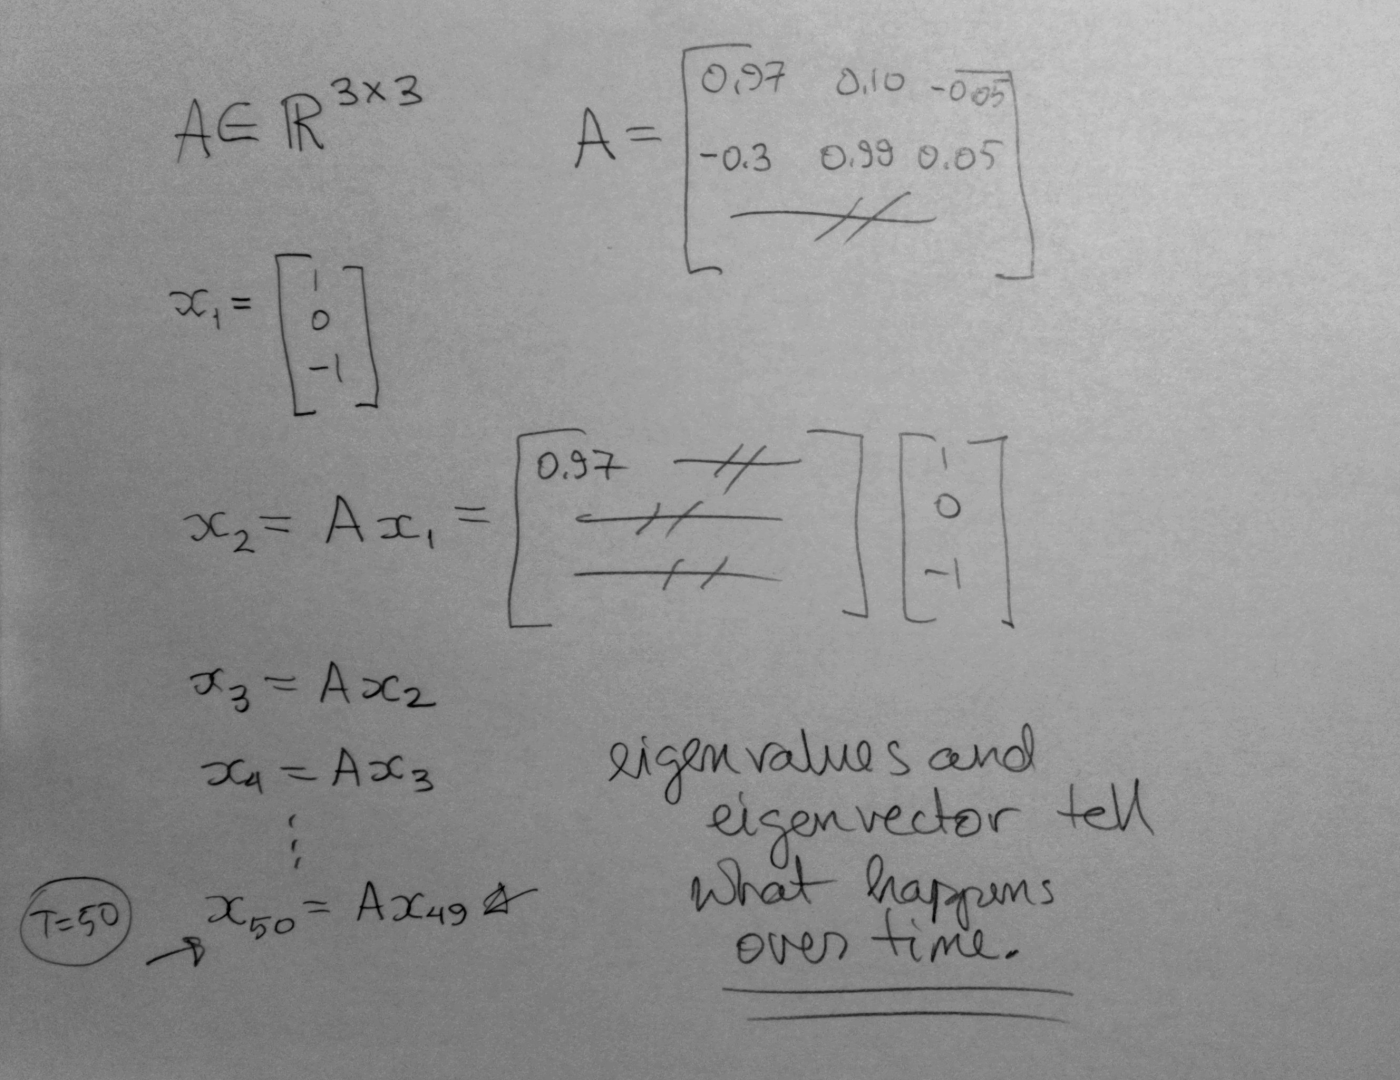 A ∈ ℝ^{3×3}
A = [ 0.97 0.10 -0.05
-0.3 0.99 0.05
—//— ]
x₁ = [ 1
0
-1 ]
x₂ = A x₁ = [ 0.97 —//—
—//—
—//— ] [ 1
0
-1 ]
x₃ = A x₂
x₄ = A x₃
⋮
T=50 → x₅₀ = A x₄₉
eigenvalues and
eigenvector tell
what happens
over time.